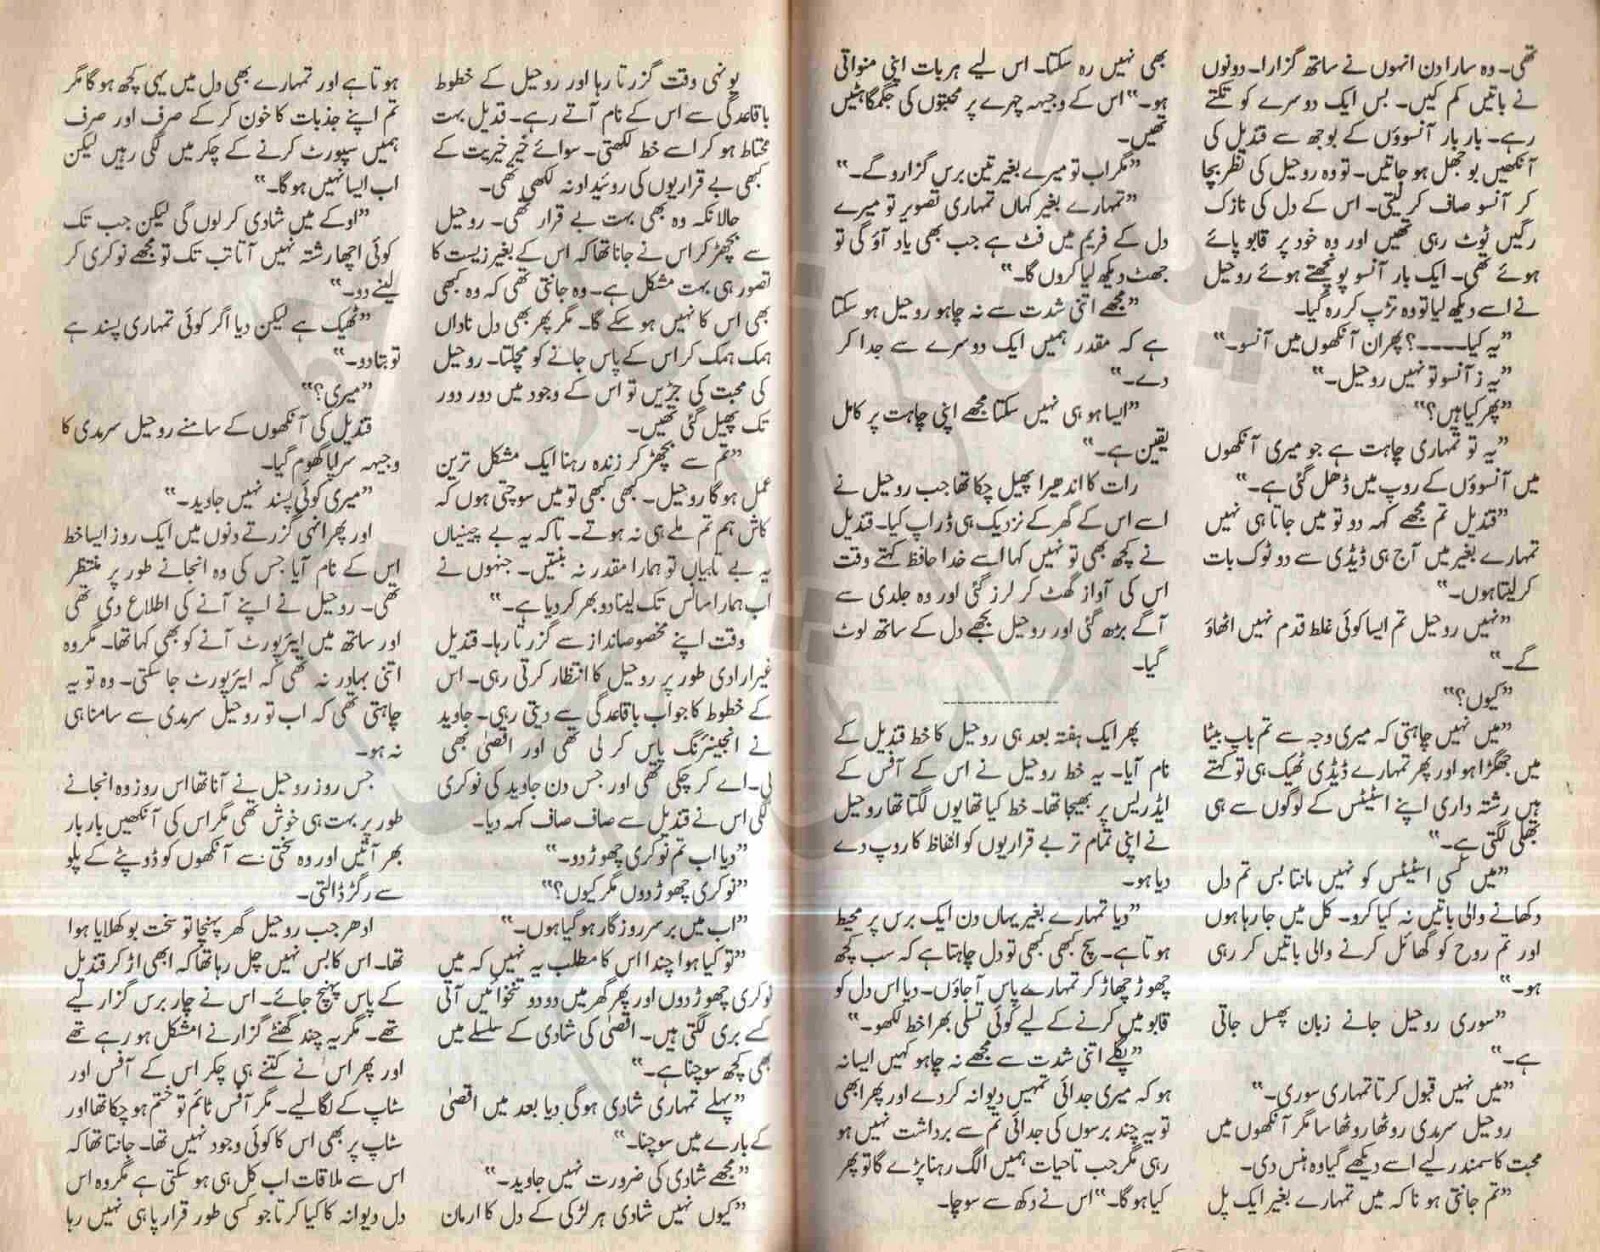 تھی۔ وہ سارا دن انہوں نے ساتھ گزارا۔ دونوں
نے باتیں کم کیں۔ بس ایک دوسرے کو تکتے
رہے۔ بار بار آنسوؤں کے بوجھ سے قندیل کی
آنکھیں بوجھل ہو جاتیں۔ تو وہ روحیل کی نظر بچا
کر آنسو صاف کر لیتی۔ اس کے دل کی نازک
رگیں ٹوٹ رہی تھیں اور وہ خود پر قابو پائے
ہوئے تھی۔ ایک بار آنسو پونچھتے ہوئے روحیل
نے اسے دیکھ لیا تو وہ تڑپ کر رہ گیا۔
”یہ کیا۔۔۔۔؟ پھر ان آنکھوں میں آنسو۔“
”یہ ز آنسو تو نہیں روحیل۔“
”پھر کیا ہیں؟“
”یہ تو تمہاری چاہت ہے جو میری آنکھوں
میں آنسوؤں کے روپ میں ڈھل گئی ہے۔“
”قندیل تم مجھے کہہ دو تو میں جاتا ہی نہیں
تمہارے بغیر میں آج ہی ڈیڈی سے دو ٹوک بات
کر لیتا ہوں۔“
”نہیں روحیل تم ایسا کوئی غلط قدم نہیں اٹھاؤ
گے۔“
”کیوں؟“
”میں نہیں چاہتی کہ میری وجہ سے تم باپ بیٹا
میں جھگڑا ہو اور پھر تمہارے ڈیڈی ٹھیک ہی تو کہتے
ہیں رشتہ داری اپنے اسٹیٹس کے لوگوں سے ہی
بھلی لگتی ہے۔“
”میں کسی اسٹیٹس کو نہیں مانتا بس تم دل
دکھانے والی باتیں نہ کیا کرو۔ کل میں جا رہا ہوں
اور تم روح کو گھائل کرنے والی باتیں کر رہی
ہو۔“
”سوری روحیل جانے زبان پھسل جاتی
ہے۔“
”میں نہیں قبول کرتا تمہاری سوری۔“
روحیل سرمدی روٹھا روٹھا سا مگر آنکھوں میں
محبت کا سمندر لیے اسے دیکھے گیا وہ ہنس دی۔
”تم جانتی ہو نا کہ میں تمہارے بغیر ایک پل
بھی نہیں رہ سکتا۔ اس لیے ہر بات اپنی منواتی
ہو۔“ اس کے وجیہہ چہرے پر محبتوں کی جگمگاہٹیں
تھیں۔
”مگر اب تو میرے بغیر تین برس گزارو گے۔“
”تمہارے بغیر کہاں تمہاری تصویر تو میرے
دل کے فریم میں فٹ ہے جب بھی یاد آؤ گی تو
جھٹ دیکھ لیا کروں گا۔“
”مجھے اتنی شدت سے نہ چاہو روحیل ہو سکتا
ہے کہ مقدر ہمیں ایک دوسرے سے جدا کر
دے۔“
”ایسا ہو ہی نہیں سکتا مجھے اپنی چاہت پر کامل
یقین ہے۔“
رات کا اندھیرا پھیل چکا تھا جب روحیل نے
اسے اس کے گھر کے نزدیک ہی ڈراپ کیا۔ قندیل
نے کچھ بھی تو نہیں کہا اسے خدا حافظ کہتے وقت
اس کی آواز گھٹ کر لرز گئی اور وہ جلدی سے
آگے بڑھ گئی اور روحیل بجھے دل کے ساتھ لوٹ
گیا۔
---------------
پھر ایک ہفتہ بعد ہی روحیل کا خط قندیل کے
نام آیا۔ یہ خط روحیل نے اس کے آفس کے
ایڈریس پر بھیجا تھا۔ خط کیا تھا یوں لگتا تھا روحیل
نے اپنی تمام تر بے قراریوں کو الفاظ کا روپ دے
دیا ہو۔
”دیا تمہارے بغیر یہاں دن ایک برس پر محیط
ہوتا ہے۔ سچ کبھی کبھی تو دل چاہتا ہے کہ سب کچھ
چھوڑ چھاڑ کر تمہارے پاس آ جاؤں۔ دیا اس دل کو
قابو میں کرنے کے لیے کوئی تسلی بھرا خط لکھو۔“
”پگلے اتنی شدت سے مجھے نہ چاہو کہیں ایسا نہ
ہو کہ میری جدائی تمہیں دیوانہ کر دے اور پھر ابھی
تو یہ چند برسوں کی جدائی تم سے برداشت نہیں ہو
رہی مگر جب تاحیات ہمیں الگ رہنا پڑے گا تو پھر
کیا ہو گا۔“ اس نے دکھ سے سوچا۔
یونہی وقت گزرتا رہا اور روحیل کے خطوط
باقاعدگی سے اس کے نام آتے رہے۔ قندیل بہت
محتاط ہو کر اسے خط لکھتی۔ سوائے خیر خیریت کے
کبھی بے قراریوں کی روئیداد نہ لکھی تھی۔
حالانکہ وہ بھی بہت بے قرار تھی۔ روحیل
سے بچھڑ کر اس نے جانا تھا کہ اس کے بغیر زیست کا
تصور ہی بہت مشکل ہے۔ وہ جانتی تھی کہ وہ کبھی
بھی اس کا نہیں ہو سکے گا۔ مگر پھر بھی دل ناداں
ہمک ہمک کر اس کے پاس جانے کو مچلتا۔ روحیل
کی محبت کی جڑیں تو اس کے وجود میں دور دور
تک پھیل گئی تھیں۔
”تم سے بچھڑ کر زندہ رہنا ایک مشکل ترین
عمل ہو گا روحیل۔ کبھی کبھی تو میں سوچتی ہوں کہ
کاش ہم تم ملے ہی نہ ہوتے۔ تاکہ یہ بے چینیاں
یہ بے تابیاں تو ہمارا مقدر نہ بنتیں۔ جنہوں نے
اب ہمارا سانس تک لینا دوبھر کر دیا ہے۔“
وقت اپنے مخصوص انداز سے گزرتا رہا۔ قندیل
غیر ارادی طور پر روحیل کا انتظار کرتی رہی۔ اس
کے خطوط کا جواب باقاعدگی سے دیتی رہی۔ جاوید
نے انجینئرنگ پاس کر لی تھی اور اقصیٰ بھی
بی۔اے کر چکی تھی اور جس دن جاوید کی نوکری
لگی اس نے قندیل سے صاف صاف کہہ دیا۔
”دیا اب تم نوکری چھوڑ دو۔“
”نوکری چھوڑ دوں مگر کیوں؟“
”اب میں برسر روزگار ہو گیا ہوں۔“
”تو کیا ہوا چندا اس کا مطلب یہ نہیں کہ میں
نوکری چھوڑ دوں اور پھر گھر میں دو دو تنخواہیں آتی
کے بری لگتی ہیں۔ اقصیٰ کی شادی کے سلسلے میں
بھی کچھ سوچنا ہے۔“
”پہلے تمہاری شادی ہو گی دیا بعد میں اقصیٰ
کے بارے میں سوچنا۔“
”مجھے شادی کی ضرورت نہیں جاوید۔“
”کیوں نہیں شادی ہر لڑکی کے دل کا ارمان
ہوتا ہے اور تمہارے بھی دل میں یہی کچھ ہو گا مگر
تم اپنے جذبات کا خون کر کے صرف اور صرف
ہمیں سپورٹ کرنے کے چکر میں لگی رہیں لیکن
اب ایسا نہیں ہو گا۔“
”اوکے میں شادی کر لوں گی لیکن جب تک
کوئی اچھا رشتہ نہیں آتا تب تک تو مجھے نوکری کر
لینے دو۔“
”ٹھیک ہے لیکن دیا اگر کوئی تمہاری پسند ہے
تو بتا دو۔“
”میری؟“
قندیل کی آنکھوں کے سامنے روحیل سرمدی کا
وجیہہ سراپا گھوم گیا۔
”میری کوئی پسند نہیں جاوید۔“
اور پھر انہی گزرتے دنوں میں ایک روز ایسا خط
اس کے نام آیا جس کی وہ انجانے طور پر منتظر
تھی۔ روحیل نے اپنے آنے کی اطلاع دی تھی
اور ساتھ میں ایئرپورٹ آنے کو بھی کہا تھا۔ مگر وہ
اتنی بہادر نہ تھی کہ ایئرپورٹ جا سکتی۔ وہ تو یہ
چاہتی تھی کہ اب تو روحیل سرمدی سے سامنا ہی
نہ ہو۔
جس روز روحیل نے آنا تھا اس روز وہ انجانے
طور پر بہت ہی خوش تھی مگر اس کی آنکھیں بار بار
بھر آتیں اور وہ سختی سے آنکھوں کو ڈوپٹے کے پلو
سے رگڑ ڈالتی۔
ادھر جب روحیل گھر پہنچا تو سخت بوکھلایا ہوا
تھا۔ اس کا بس نہیں چل رہا تھا کہ ابھی اڑ کر قندیل
کے پاس پہنچ جائے۔ اس نے چار برس گزار لیے
تھے۔ مگر یہ چند گھنٹے گزارنے مشکل ہو رہے تھے
اور پھر اس نے کتنے ہی چکر اس کے آفس اور
سٹاپ کے لگا لیے۔ مگر آفس ٹائم تو ختم ہو چکا تھا اور
سٹاپ پر بھی اس کا کوئی وجود نہیں تھا۔ جانتا تھا کہ
اس سے ملاقات اب کل ہی ہو سکتی ہے مگر وہ اس
دل دیوانہ کا کیا کرتا جو کسی طور قرار پا ہی نہیں رہا